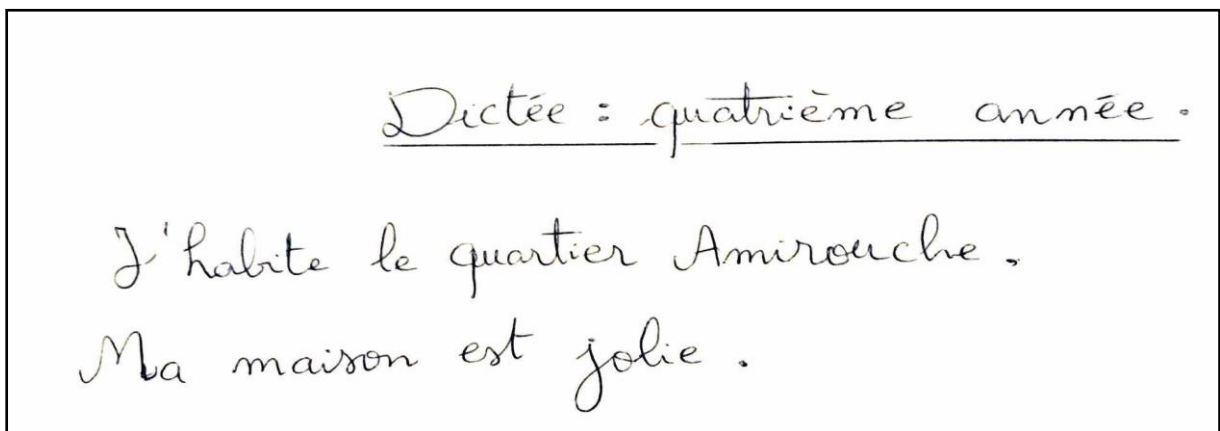 Dictée : quatrième année.
J'habite le quartier Amirouche.
Ma maison est jolie.